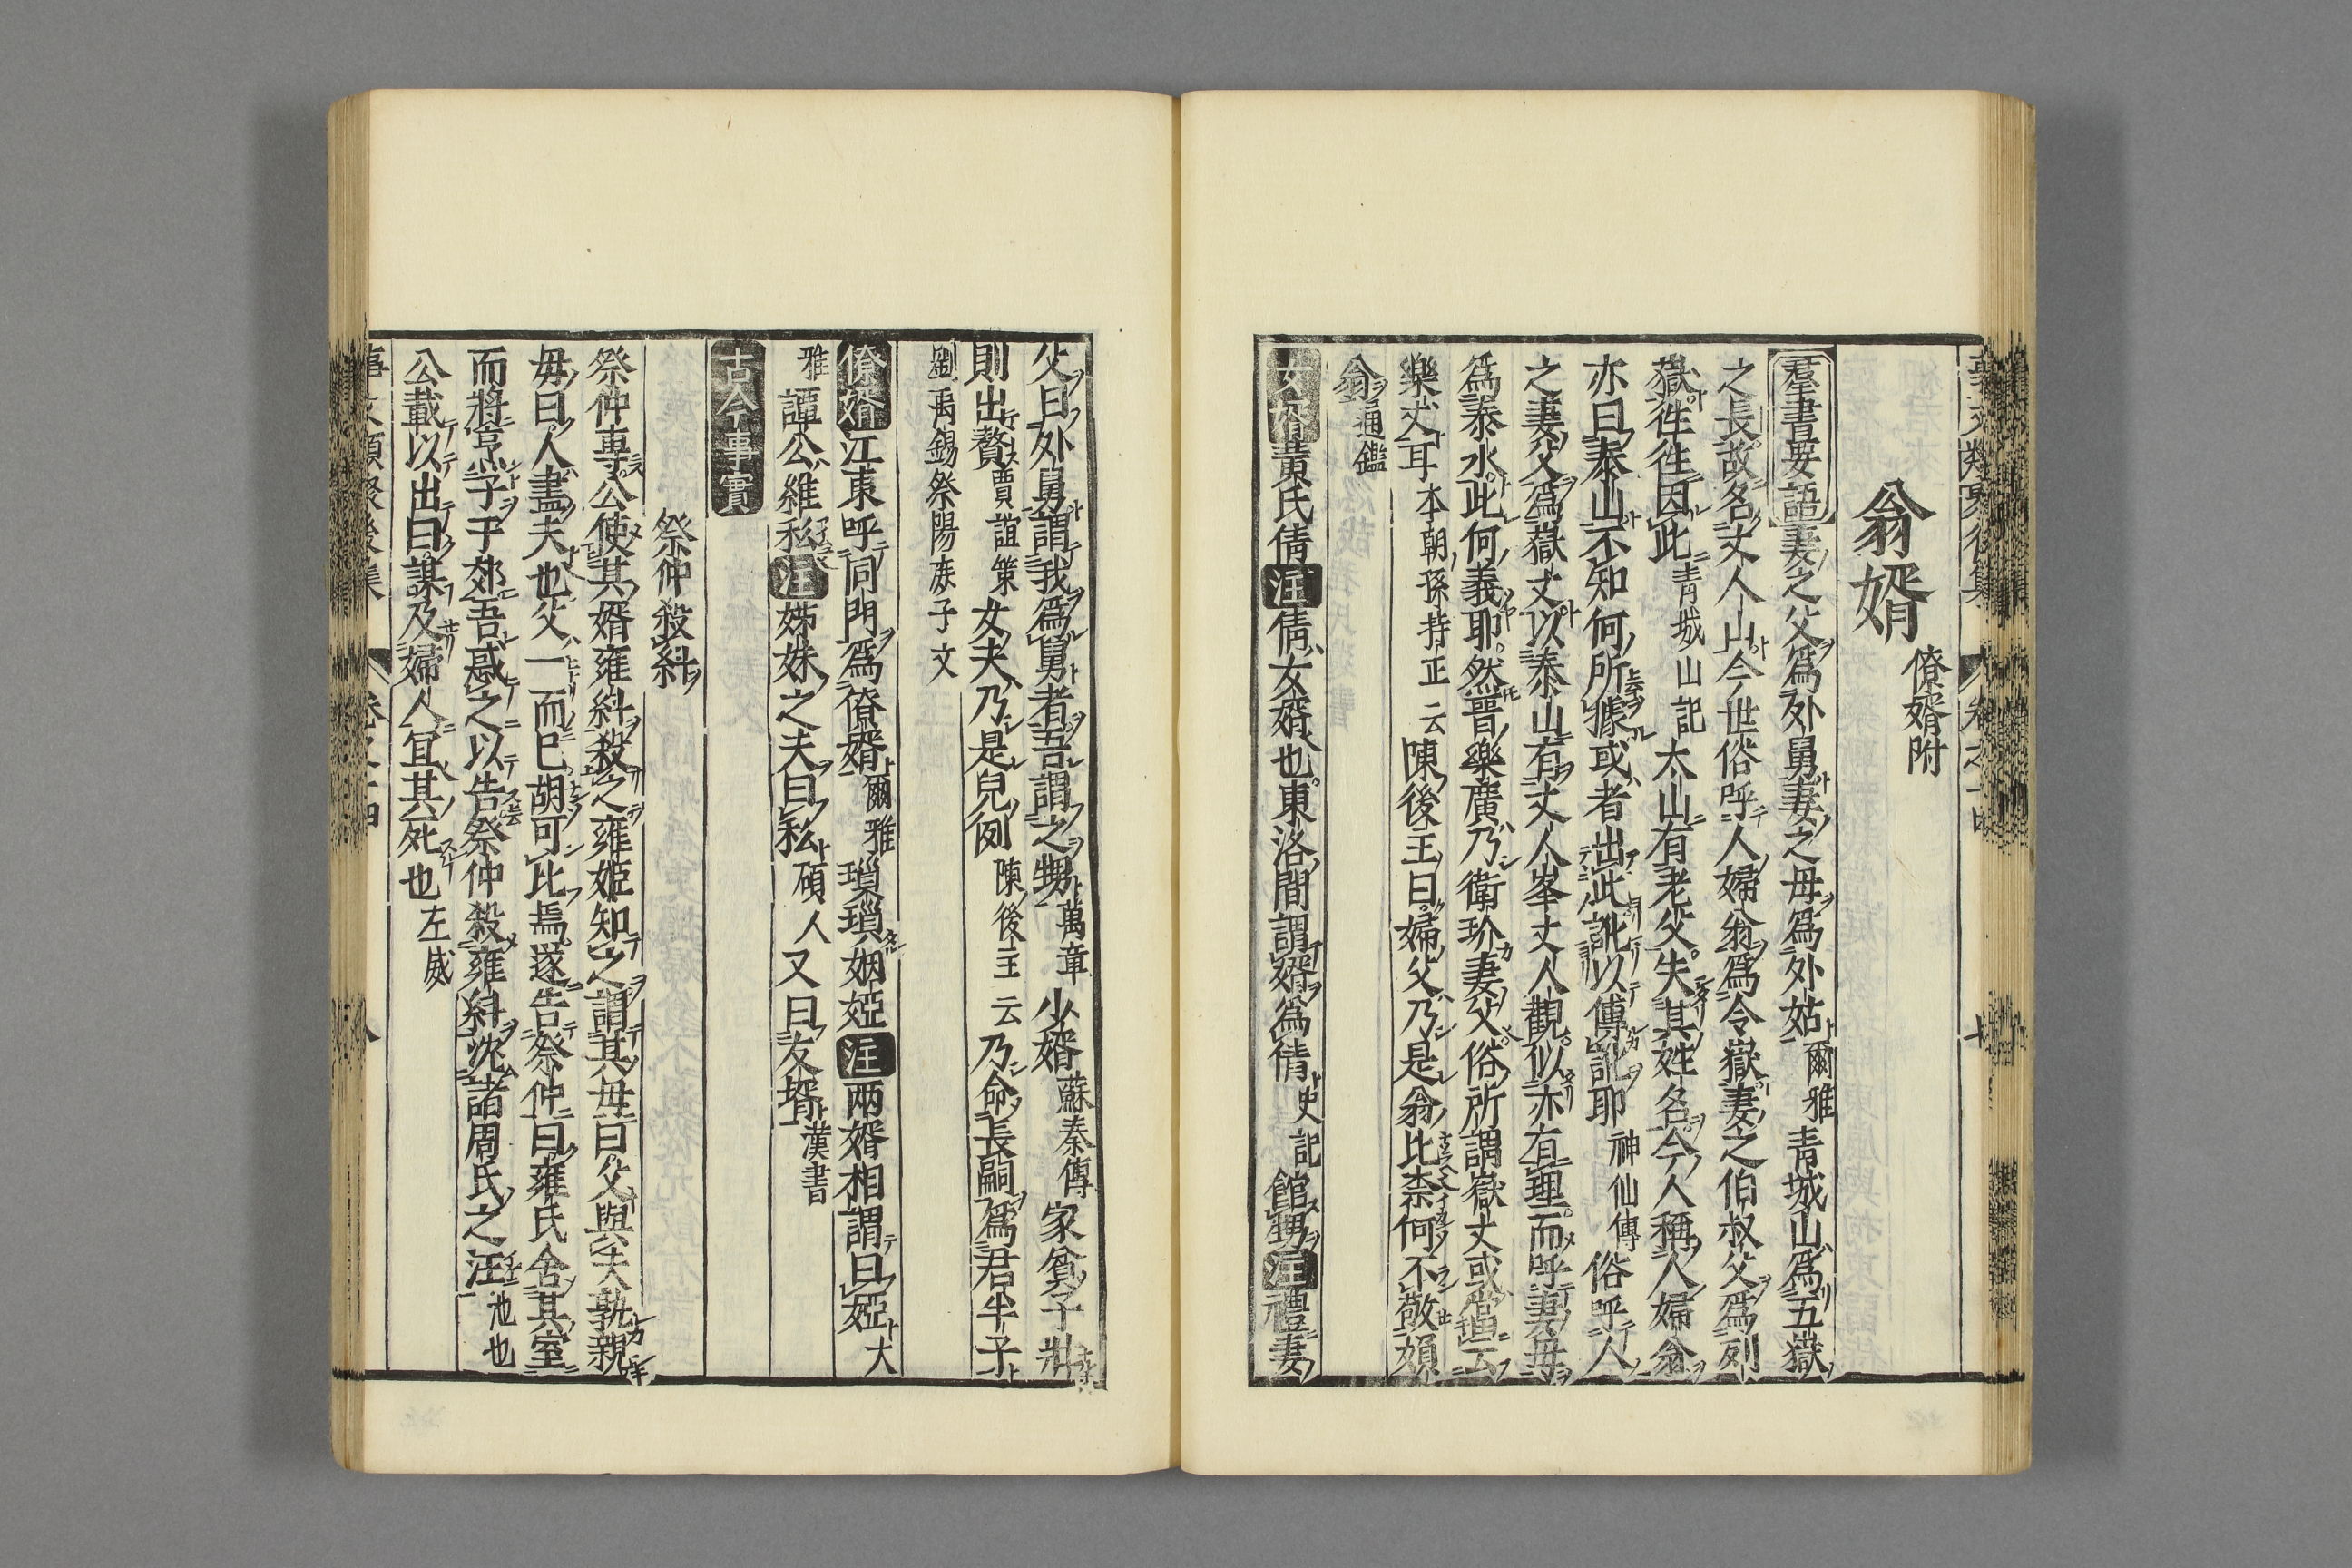 翁婿 僚婿附
羣書要語 妻之父爲外舅妻之母爲外姑 爾雅 青城山爲五嶽
之長故名丈人山今世俗呼人婦翁爲令嶽妻之伯叔父爲列
嶽徃徃因此 青城山記 太山有老父失其姓名今人稱人婦翁
亦曰泰山不知何所據或者出此訛以傳訛耶 神仙傳 俗呼人
之妻父爲嶽丈以泰山有丈人峯丈人觀似亦有理而呼妻母
爲泰水此何義耶然晉樂廣乃衛玠妻父俗所謂嶽丈或當云
樂丈耳 本朝孫持正云 陳後主曰婦父乃是翁比柰何不敬頻
翁 通鑑
女婿 黄氏倩 注 倩女婿也東洛間謂婿爲倩 史記 館甥 注 禮妻
父曰外舅謂我爲舅者吾謂之甥 萬章 少婿 蘇秦傳 家貧子壯
則出贅 賈誼策 女夫乃是兒例 陳後主云 乃命長嗣爲君半子
劉禹錫祭陽族子文
僚婿 江東呼同門爲僚婿 爾雅 瑣瑣姻婭 注 兩婿相謂曰婭 大
雅 譚公維私 注 姊妹之夫曰私 碩人 又曰友壻 漢書
古今事實
祭仲殺糾
祭仲專公使其婿雍糾殺之雍姬知之謂其母曰父與夫孰親
母曰人盡夫也父一而已胡可比焉遂告祭仲曰雍氏舍其室
而將烹子于郊吾惑之以告祭仲殺雍糾沈諸周氏之汪 池也
公載以出曰謀及婦人宜其死也 左威